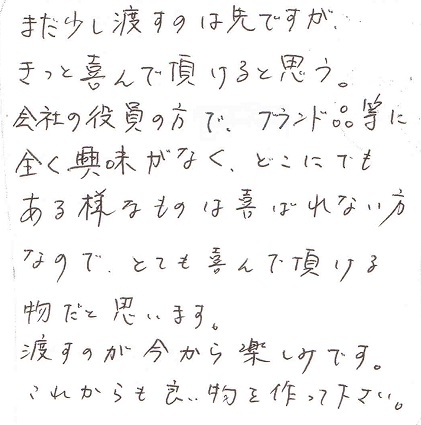 まだ少し渡すのは先ですが、
きっと喜んで頂けると思う。
会社の役員の方で、ブランド品等に
全く興味がなく、どこにでも
ある様なものは喜ばれない方
なので、とても喜んで頂ける
物だと思います。
渡すのが今から楽しみです。
これからも良い物を作って下さい。